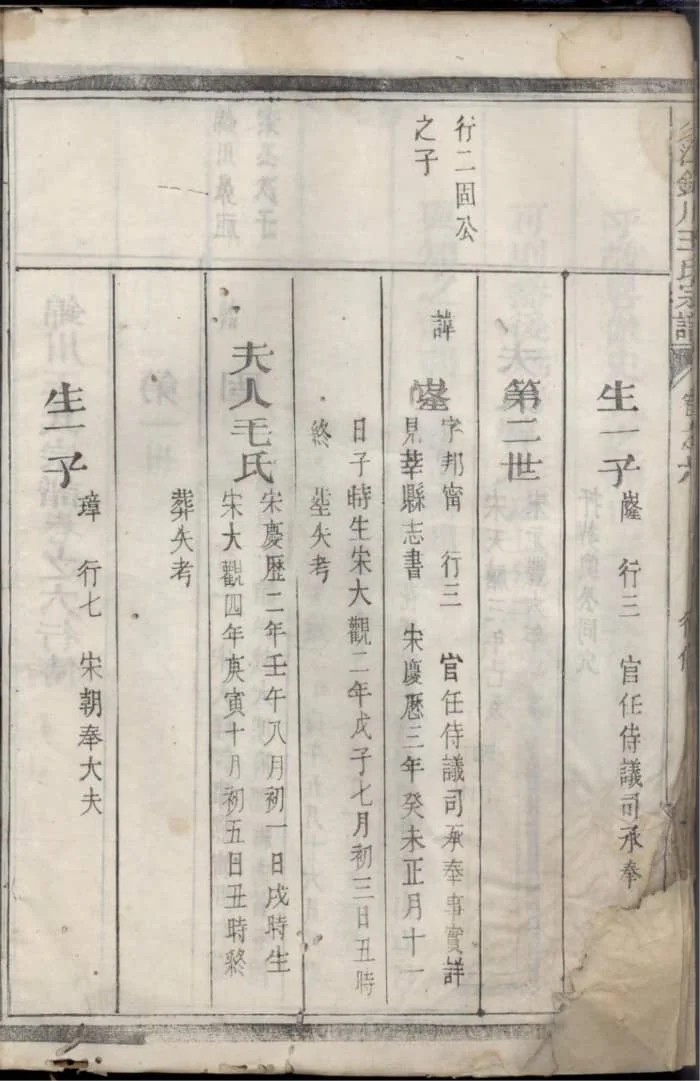 錦川王氏宗譜
生一子 嶐 行三 官任侍議司承奉
第二世
行二固公
之子
諱 嶐
字邦甯 行三 官任侍議司承奉事實詳
見莘縣志書 宋慶厯三年癸未正月十一
日子時生宋大觀二年戊子七月初三日丑時
終 塋失考
夫人毛氏
宋慶歷二年壬午八月初一日戌時生
宋大觀四年庚寅十月初五日丑時終
葬失考
生一子 璋 行七 宋朝奉大夫